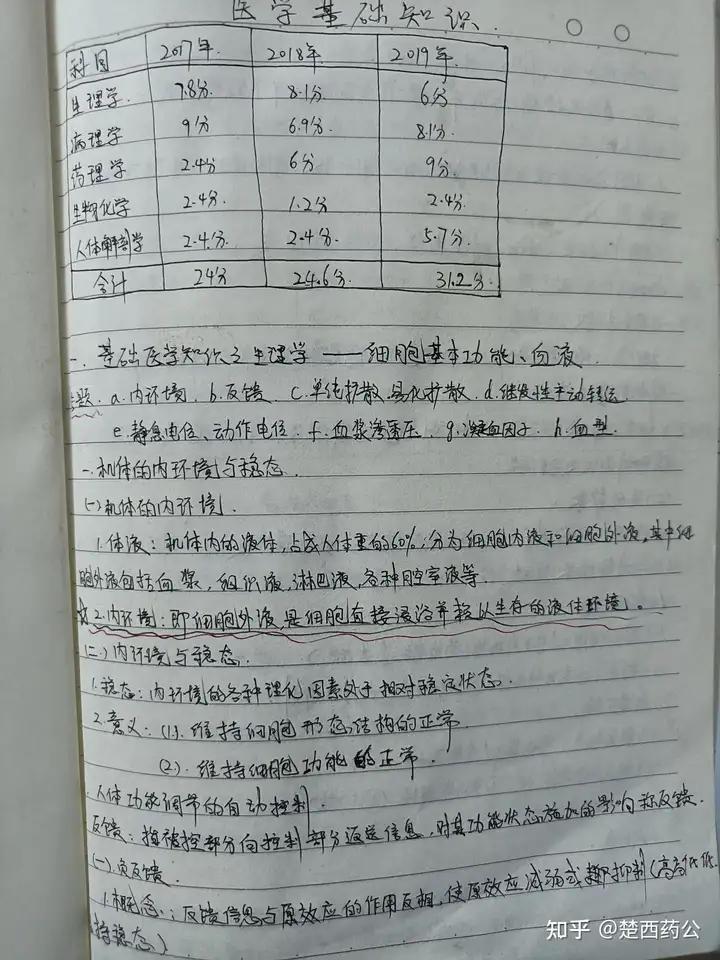 医学基础知识.
科目 2017年. 2018年. 2019年.
生理学. 7.8分. 8.1分 6分
病理学 9分 6.9分. 8.1分.
药理学 2.4分 6分 9分.
生物化学 2.4分. 1.2分 2.4分.
人体解剖学 2.4分. 2.4分. 5.7分.
合计 24分 24.6分. 31.2分.
一. 基础医学知识之生理学——细胞基本功能、血液.
主题. a.内环境. b.反馈. c.单纯扩散.易化扩散. d.继发性主动转运
e.静息电位、动作电位. f.血浆渗透压. g.凝血因子. h.血型.
一.机体的内环境与稳态.
(一)机体的内环境.
1.体液：机体内的液体，占成人体重的60%，分为细胞内液和细胞外液。其中细
胞外液包括血浆，组织液，淋巴液，各种腔室液等.
☆2.内环境：即细胞外液，是细胞直接浸浴并赖以生存的液体环境。
(二)内环境与稳态.
1.稳态：内环境的各种理化因素处于相对稳定状态.
2.意义：(1).维持细胞形态结构的正常
(2).维持细胞功能的正常.
人体功能调节的自动控制.
反馈：指被控部分向控制部分返送信息，对其功能状态施加的影响称反馈.
(一).负反馈.
1.概念：反馈信息与原效应的作用反相，使原效应减弱或抑制(高高低低.
持稳态)
知乎 @楚西药公